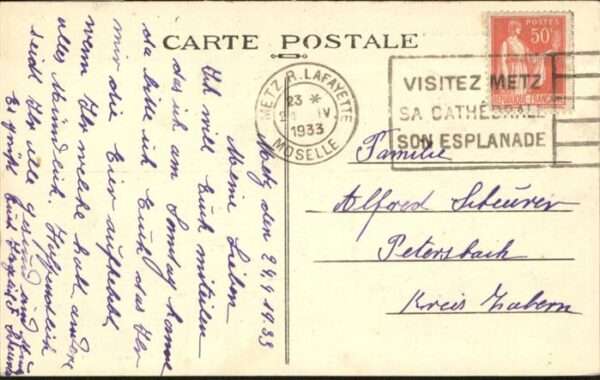 CARTE POSTALE
POSTES
50c
RÉPUBLIQUE FRANÇAISE
METZ R. LAFAYETTE
23 *
24 IV
1933
MOSELLE
VISITEZ METZ
SA CATHÉDRALE
SON ESPLANADE
Metz den 24.4.1933
Meine Lieben
Ich will Euch mitteilen
das ich am Sonntag komme
da bitte ich Euch das Ihr
mir die Eier aufhebt
wenn Ihr welche habt andere
alles Mündlich. Hoffendlich
seidt Ihr alle gesund und
Es grüßt Euch
Familie
Alfred Scheurer
Petersbach
Kreis Zabern